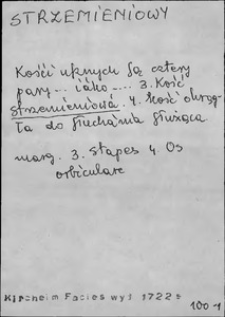 STRZEMIENIOWY
Kości usznych są cztery
pary... iáko.... 3. Kość
strzemieniowá. 4. Kość okrąg-
ła do słuchánia służąca.
marg. 3. Stapes 4. Os
orbiculare
Kircheim Facies wyd 1722 s
100-1